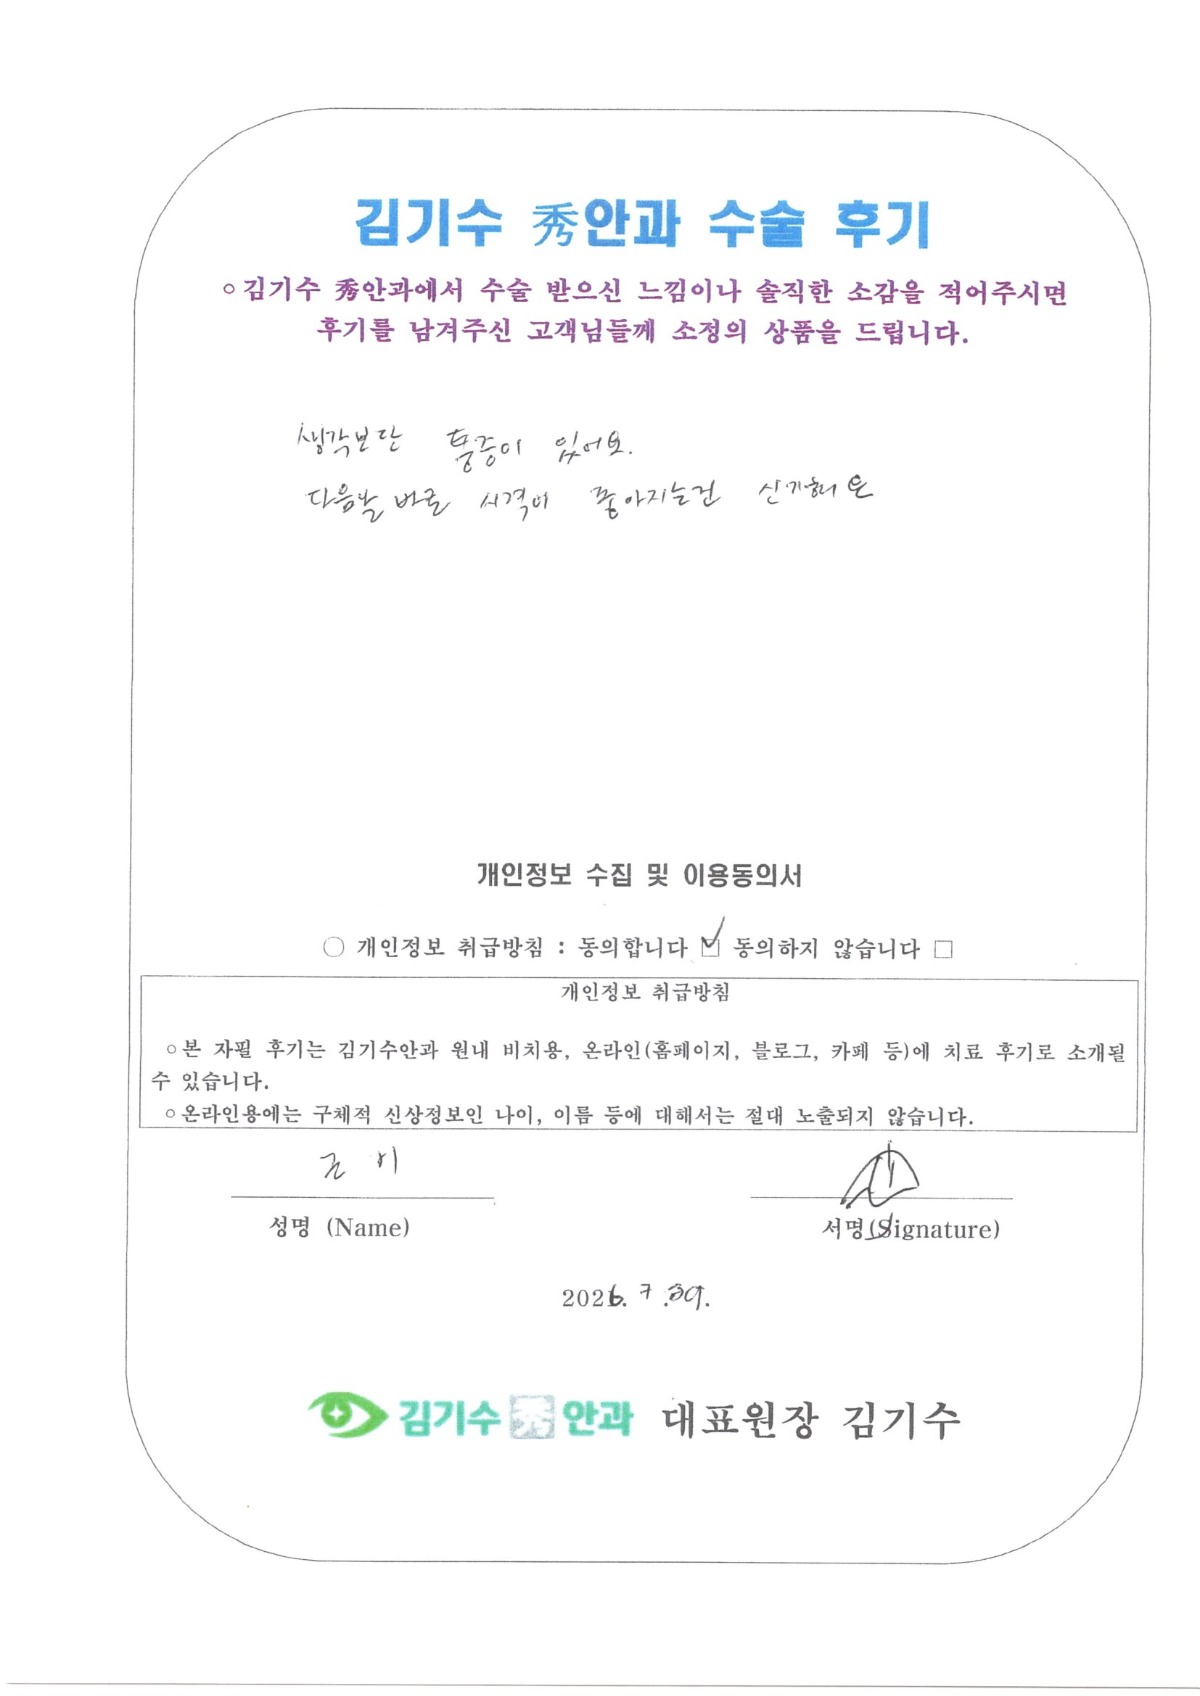 김기수 秀안과 수술 후기
○김기수 秀안과에서 수술 받으신 느낌이나 솔직한 소감을 적어주시면
후기를 남겨주신 고객님들께 소정의 상품을 드립니다.
생각보단 통증이 있어요.
다음날 바로 시력이 좋아지는건 신기해요
개인정보 수집 및 이용동의서
○ 개인정보 취급방침 : 동의합니다 ☑ 동의하지 않습니다 □
개인정보 취급방침
○본 자필 후기는 김기수안과 원내 비치용, 온라인(홈페이지, 블로그, 카페 등)에 치료 후기로 소개될
수 있습니다.
○온라인용에는 구체적 신상정보인 나이, 이름 등에 대해서는 절대 노출되지 않습니다.
성명 (Name)
서명(Signature)
2026. 7.
김기수 秀 안과 대표원장 김기수